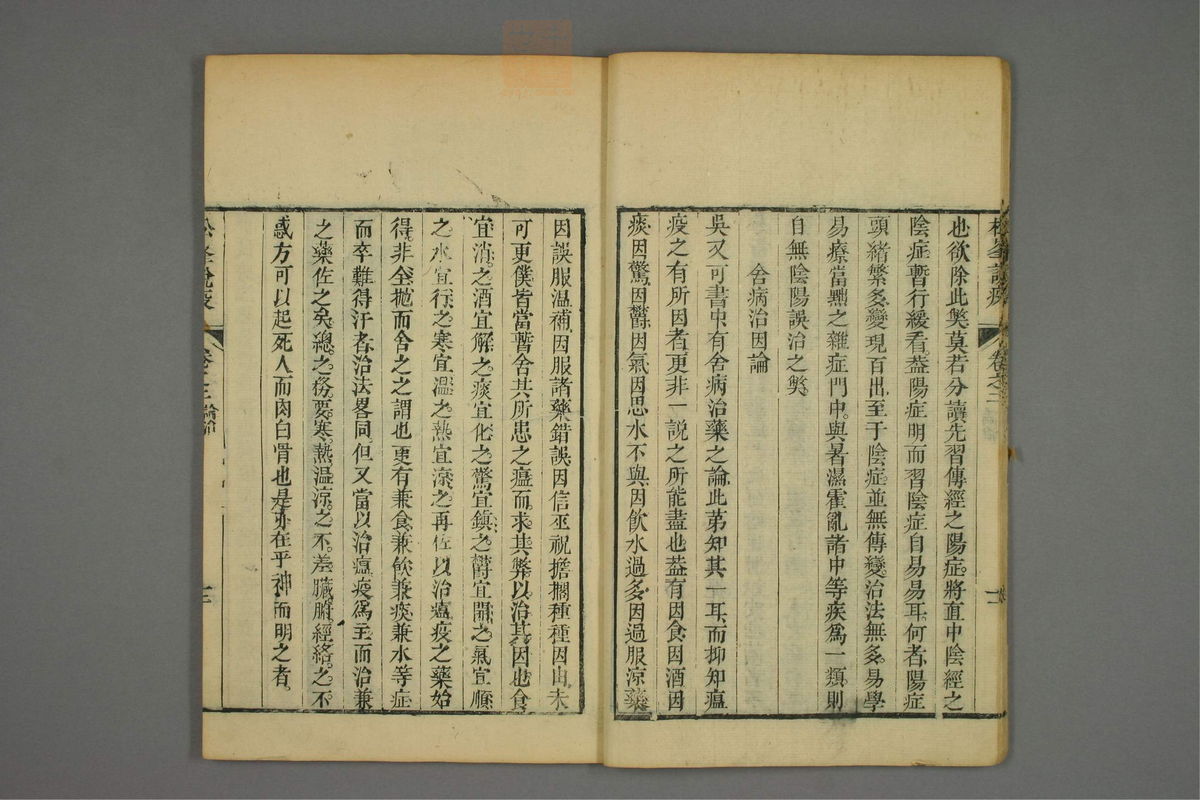 松峯說疫
卷之二
論治
二
也欲除此獘莫若分讀先習傳經之陽症將直中陰經之
陰症暫行緩看葢陽症明而習陰症自易易耳何者陽症
頭緒繁多變現百出至于陰症並無傳變治法無多易學
易療當於之雜症門中與暑濕霍亂諸中等疾爲一類則
自無陰陽誤治之獘
舍病治因論
吳又可書中有舍病治藥之論此第知其一耳而抑知瘟
疫之有所因者更非一說之所能盡也葢有因食因酒因
痰因驚因欝因氣因思水不與因飲水過多因過服涼藥
因誤服温補因服諸藥錯誤因信巫祝擔擱種種因由未
可更僕皆當暫舍其所患之瘟而求其弊以治其因也食
宜消之酒宜解之痰宜化之驚宜鎮之欝宜開之氣宜順
之水宜行之寒宜温之熱宜凉之再佐以治瘟疫之藥始
得非全抛而舍之之謂也更有兼食兼飲兼痰兼水等症
而卒難得汗者治法畧同但又當以治瘟疫爲主而治兼
之藥佐之矣總之務要寒熱温凉之不差臟腑經絡之不
惑方可以起死人而肉白骨也是亦在乎神而明之者
松峯說疫
卷之二
論治
三